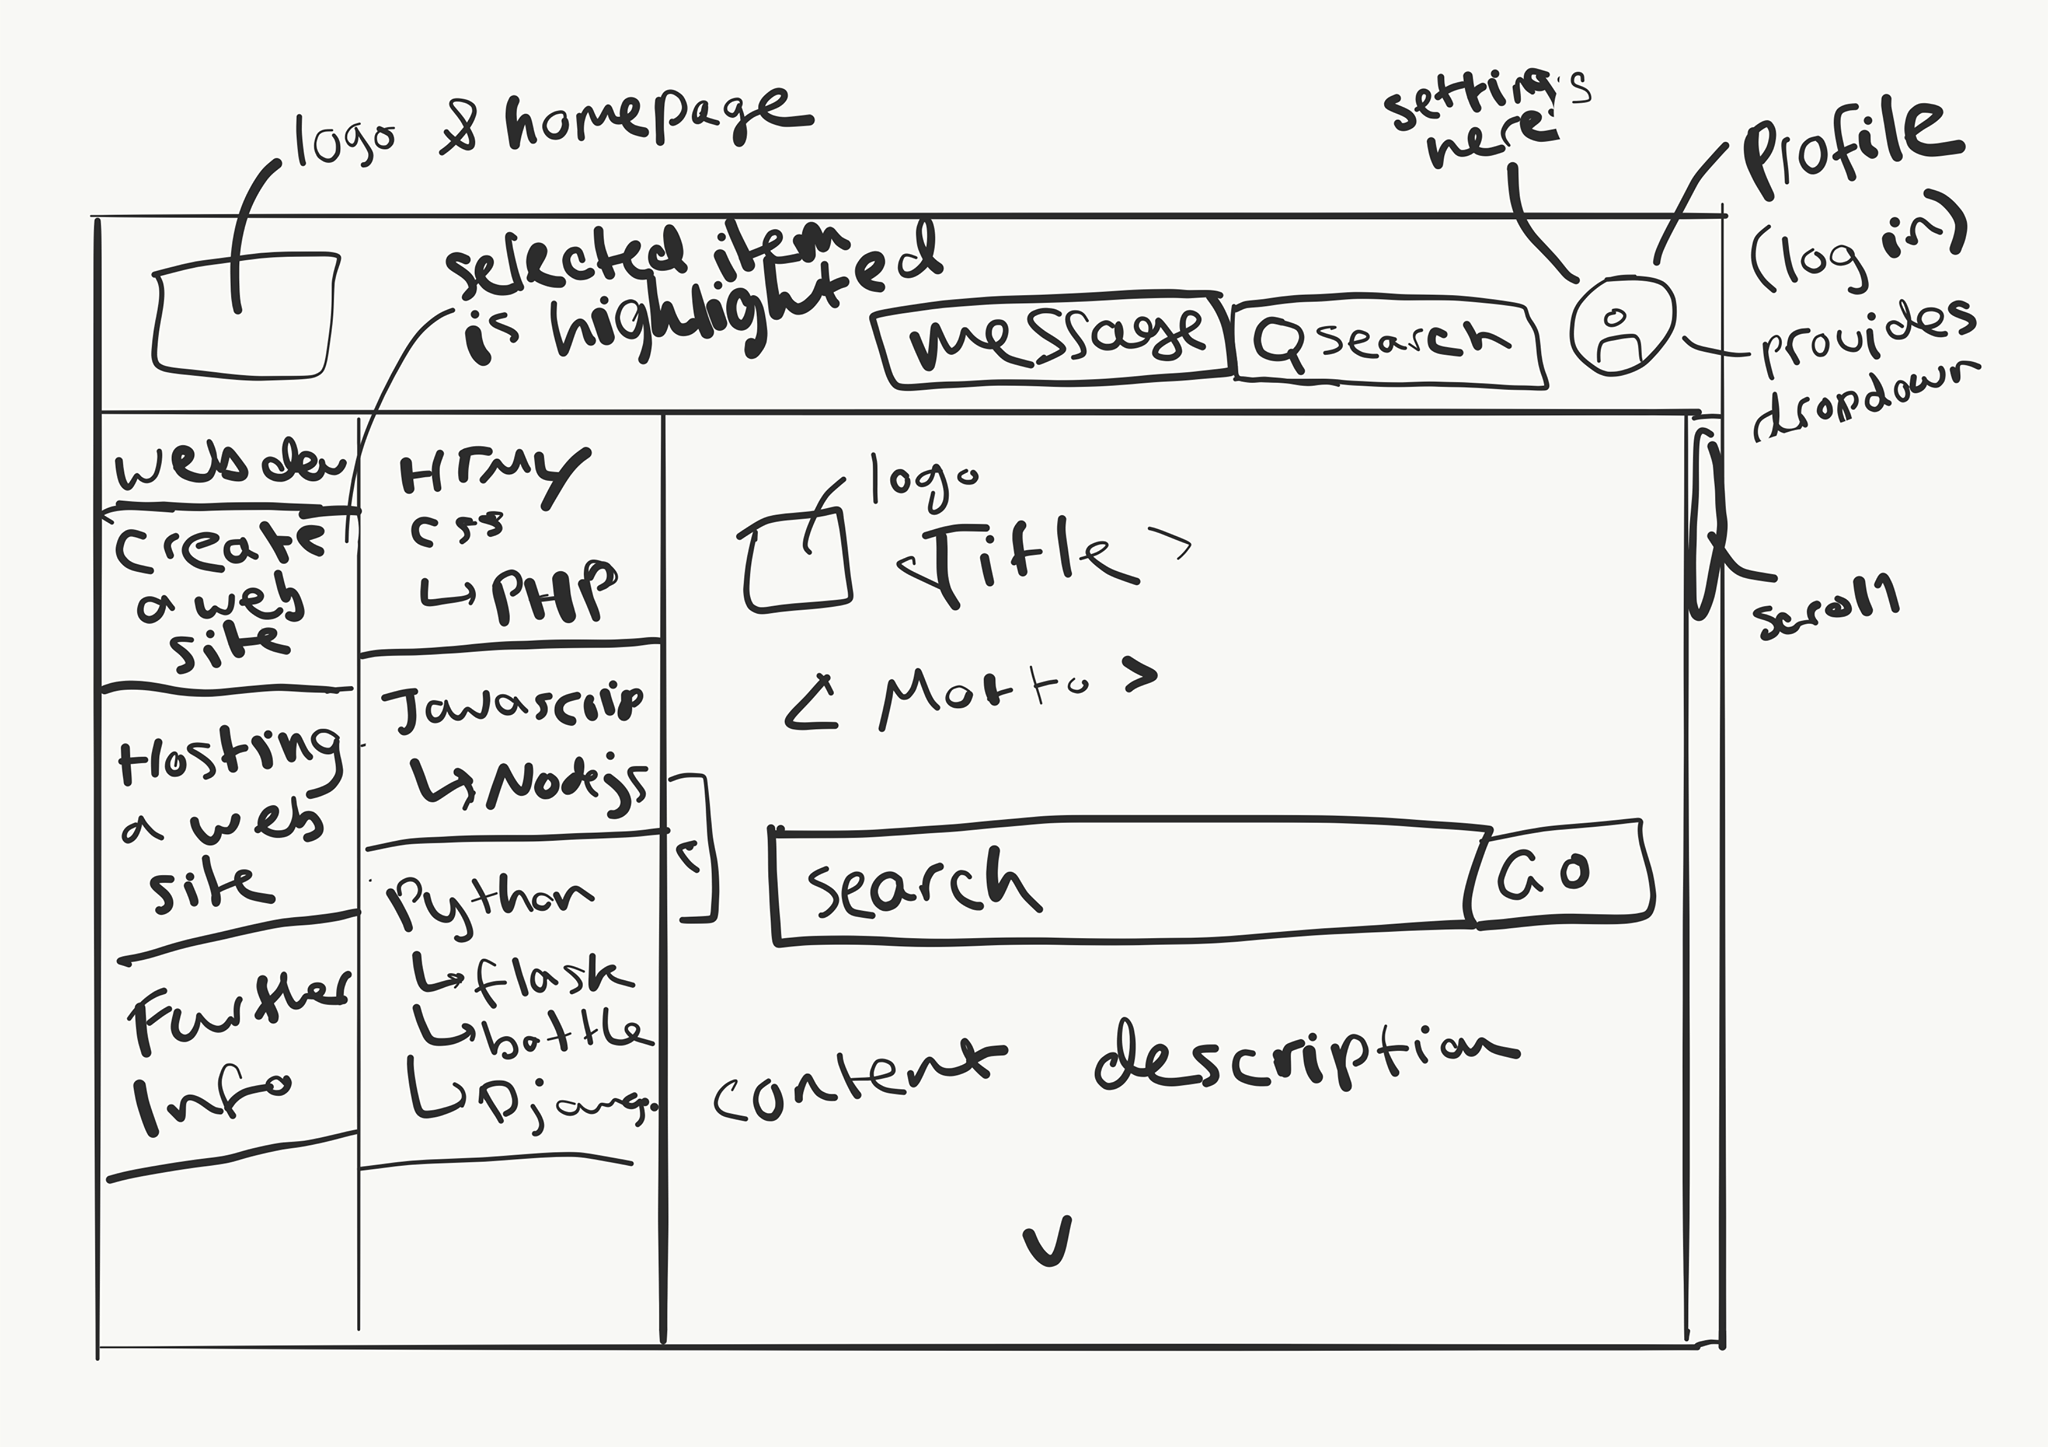 logo & homepage
settings
here
Profile
(log in)
provides
dropdown
selected item
is highlighted
message
search
web dev
Create
a web
site
Hosting
a web
site
Further
Info
HTML/
css
PHP
Javascrip
Nodejs
Python
flask
bottle
Django
logo
<Title>
< Motto >
scroll
search
GO
content description